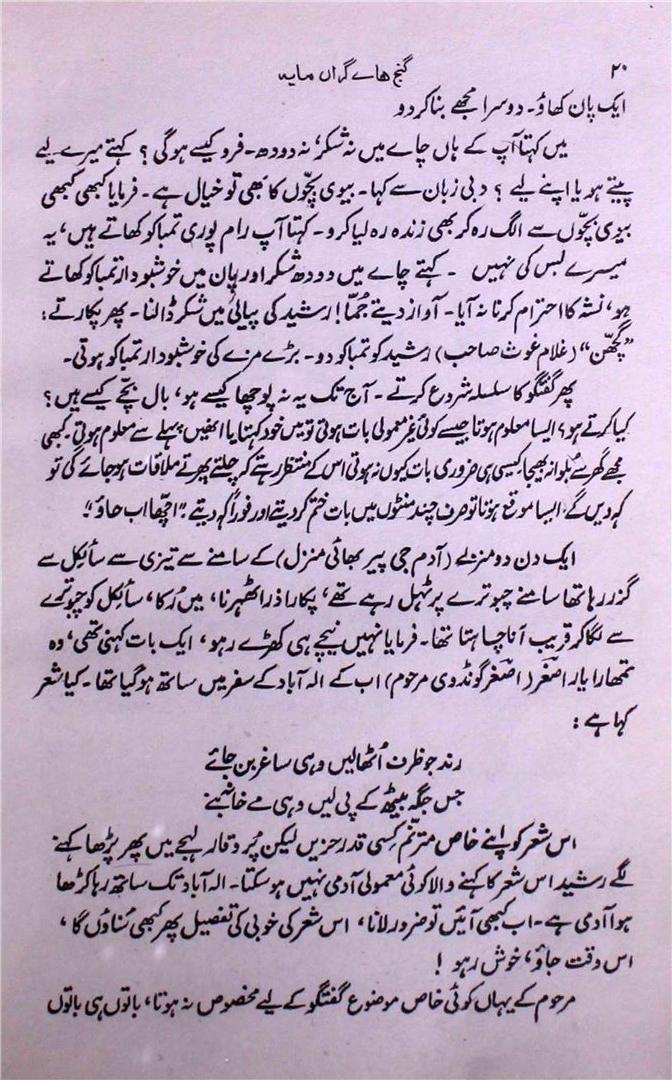 ۲۰ گنج ھاے گراں مایہ
ایک پان کھاؤ۔ دوسرا مجھے بنا کر دو
میں کہتا آپ کے ہاں چاے میں نہ شکر، نہ دودھ۔ فرو کیسے ہوگی؟ کہتے میرے لیے
پیتے ہو یا اپنے لیے؟ دبی زبان سے کہا۔ بیوی بچّوں کا بھی تو خیال ہے۔ فرمایا کبھی کبھی
بیوی بچّوں سے الگ رہ کر بھی زندہ رہ لیا کرو۔ کہتا آپ رام پوری تمباکو کھاتے ہیں، یہ
میرے بس کی نہیں ۔ کہتے چاے میں دودھ شکر اور پان میں خوشبودار تمباکو کھاتے
ہو، نشہ کا احترام کرنا نہ آیا۔ آواز دیتے جُمّا! رشید کی پیالی میں شکر ڈالنا۔ پھر پکارتے:
”گچھّن“ (غلام غوث صاحب) رشید کو تمباکو دو۔ بڑے مزے کی خوشبودار تمباکو ہوتی۔
پھر گفتگو کا سلسلہ شروع کرتے۔ آج تک یہ نہ پوچھا کیسے ہو، بال بچّے کیسے ہیں؟
کیا کرتے ہو؟ ایسا معلوم ہوتا جیسے کوئی غیر معمولی بات ہوتی تو میں خود کہتا یا انھیں پہلے سے معلوم ہوتی۔ کبھی
مجھے گھر سے بُلوا نہ بھیجا کیسی ہی ضروری بات کیوں نہ ہوتی اس کے منتظر رہتے کہ چلتے پھرتے ملاقات ہو جائے گی تو
کہہ دیں گے، ایسا موقع ہوتا تو صرف چند منٹوں میں بات ختم کر دیتے اور فوراً کہہ دیتے: ”اچّھا اب جاؤ“۔
ایک دن دو منزلے (آدم جی پیر بھائی منزل) کے سامنے سے تیزی سے سائکل سے
گزر رہا تھا سامنے چبوترے پر ٹہل رہے تھے، پکارا ذرا ٹھہرنا، میں رُکا، سائکل کو چبوترے
سے لگا کر قریب آنا چاہتا تھا۔ فرمایا نہیں نیچے ہی کھڑے رہو، ایک بات کہنی تھی، وہ
تمھارا یار اصغر (اصغر گونڈوی مرحوم) اب کے الہ آباد کے سفر میں ساتھ ہو گیا تھا۔ کیا شعر
کہا ہے:
رند جو ظرف اُٹھا لیں وہی ساغر بن جائے
جس جگہ بیٹھ کے پی لیں وہی مے خانہ بنے
اس شعر کو اپنے خاص مترنّم کسی قدر حزیں لیکن پُر وقار لہجے میں پھر پڑھا کہنے
لگے رشید اس شعر کا کہنے والا کوئی معمولی آدمی نہیں ہو سکتا۔ الہ آباد تک ساتھ رہا کڑھا
ہوا آدمی ہے۔ اب کبھی آئیں تو ضرور لانا، اس شعر کی خوبی کی تفصیل پھر کبھی سُناؤں گا،
اس وقت جاؤ، خوش رہو!
مرحوم کے یہاں کوئی خاص موضوع گفتگو کے لیے مخصوص نہ ہوتا، باتوں ہی باتوں